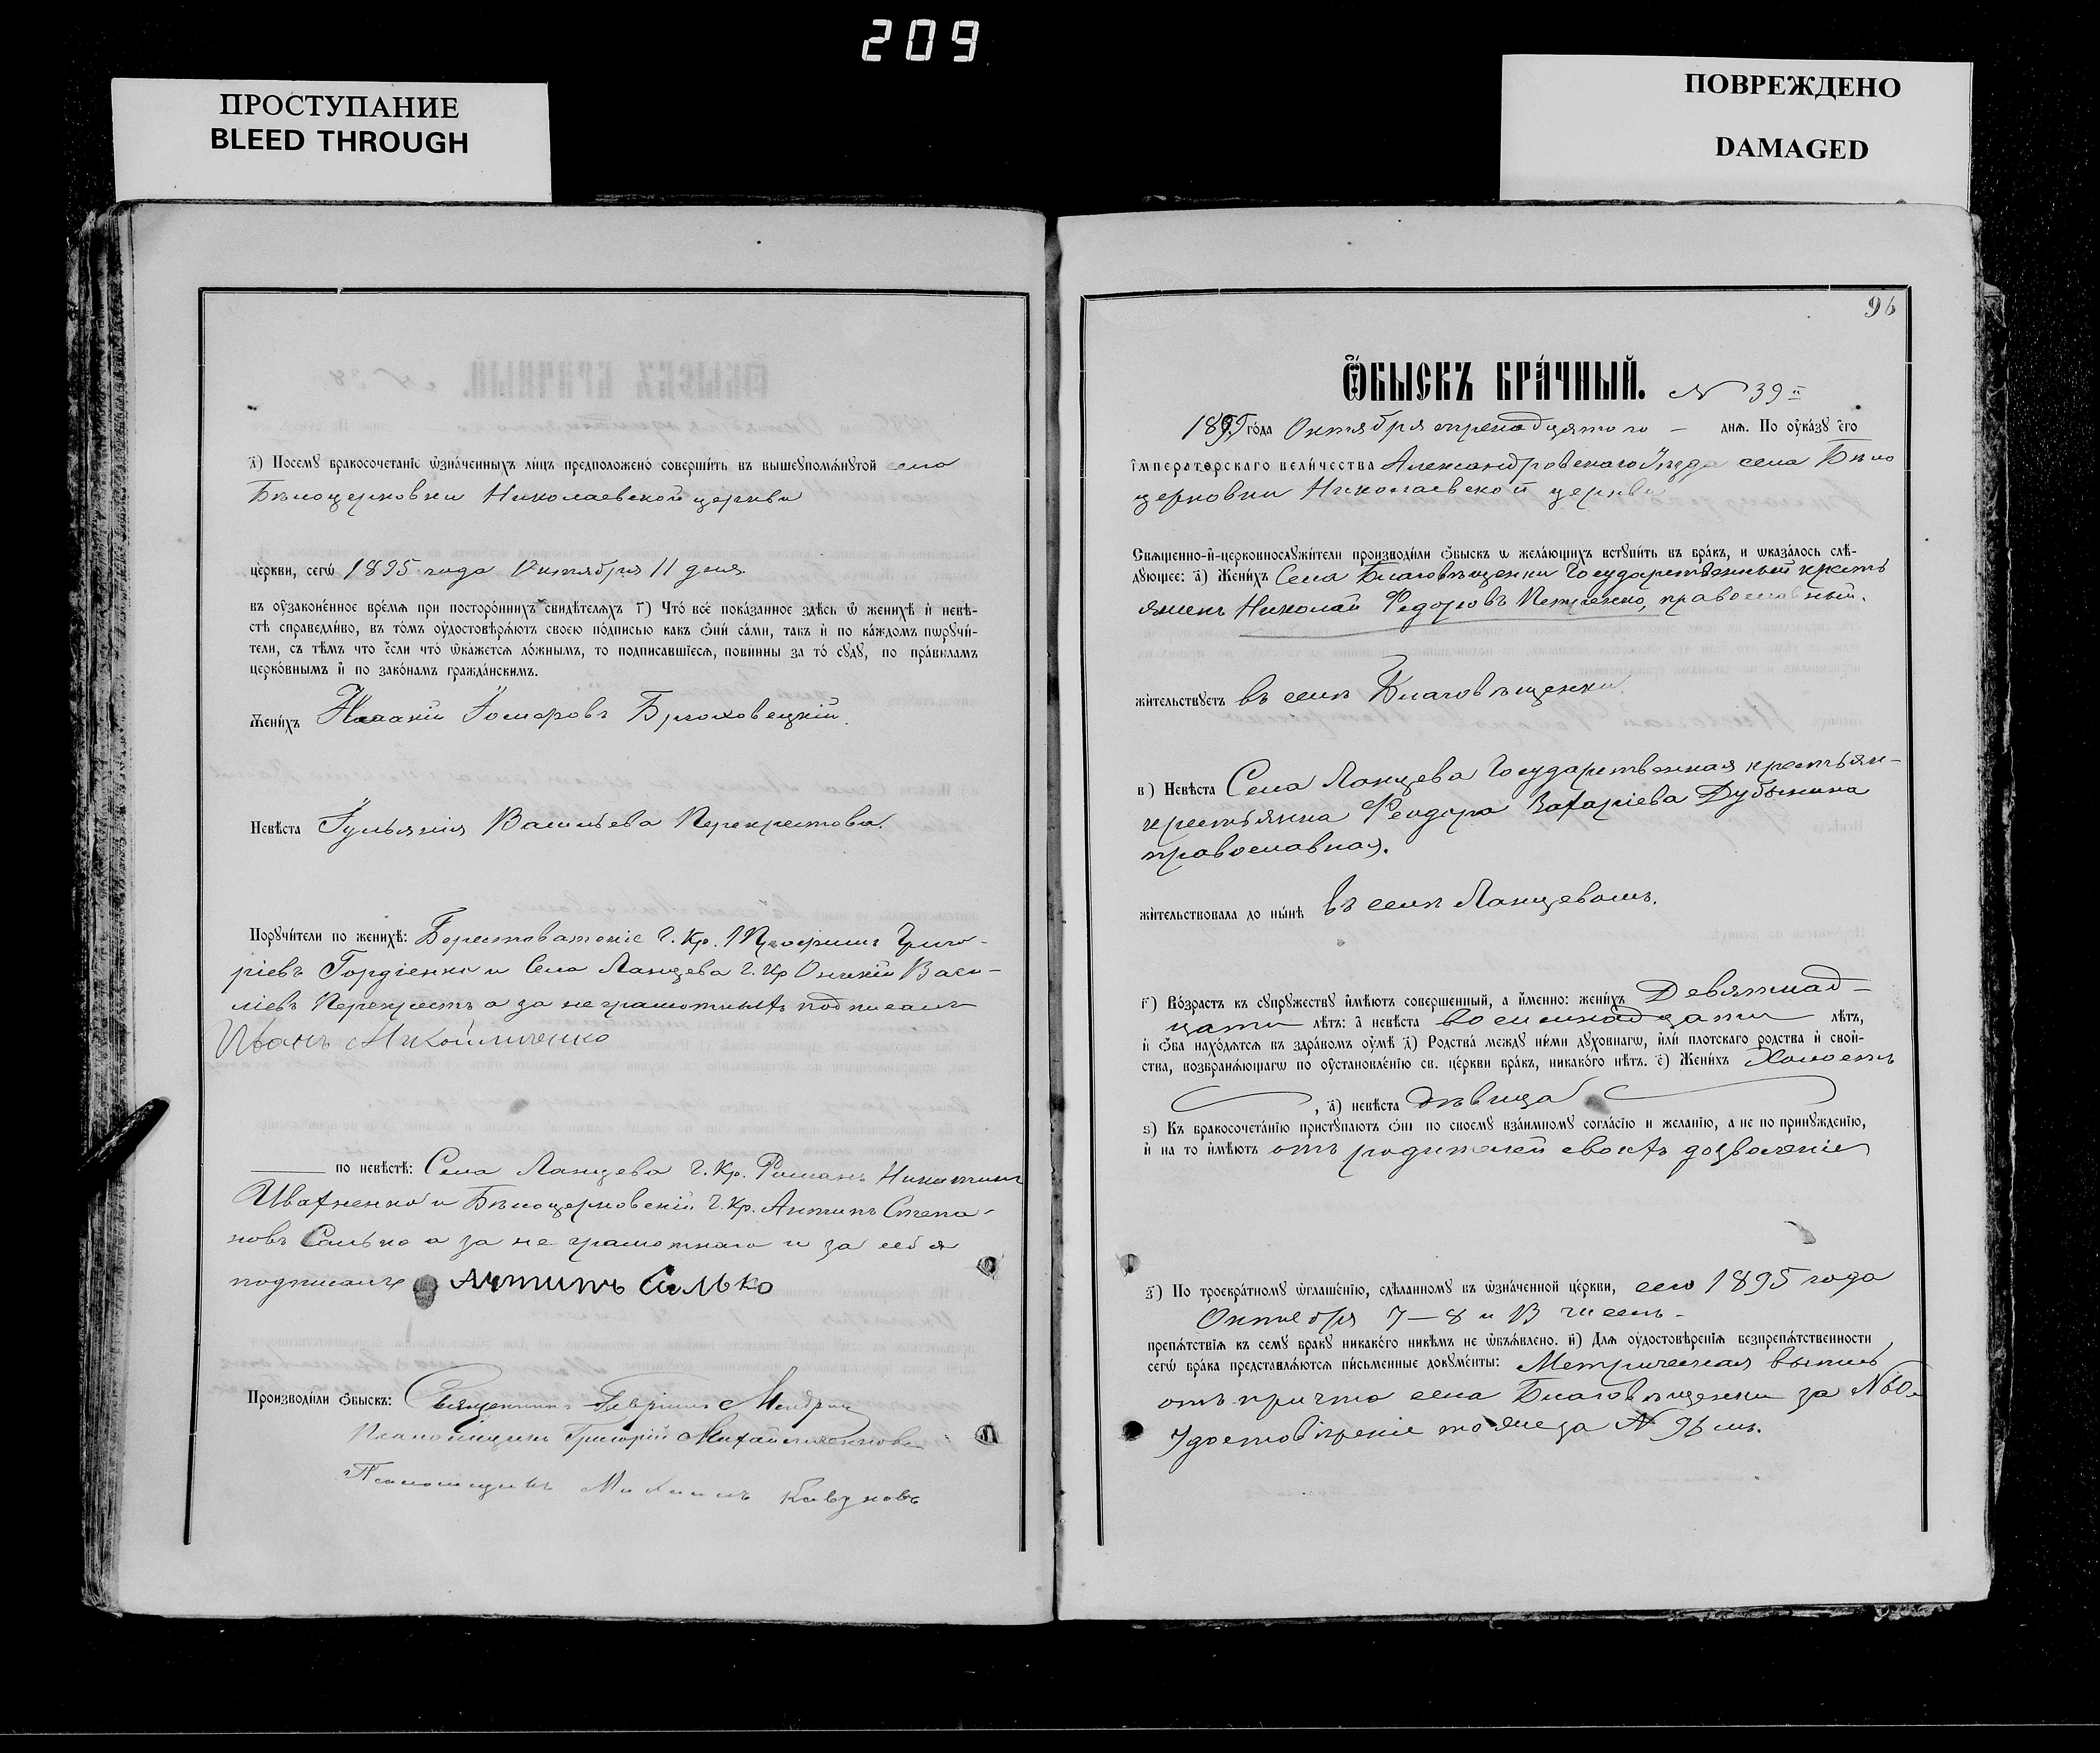 209
ПРОСТУПАНИЕ
BLEED THROUGH
ПОВРЕЖДЕНО
DAMAGED
з҃) Посемꙋ бракосочетаніе ѿзна́ченныхъ ли́цъ предположено́ соверши́ть въ вышеупомѧ́нутой села
Бѣлоцерковки Николаевской церкви
це́ркви, сегѡ̀ 1895 года Октября 11 дня.
въ ᲂу҆зако́не́нное вре́мѧ при посторо́ннихъ свидѣ́телѧхъ Г҃) Что́ все́ пока́занное здѣ́сь ѡ҆ женихѣ̀ и҆ невѣ́-
стѣ справедли́во, въ то́мъ ᲂу҆достовѣрѧ́ютъ своею по́дписью какъ ѻ҆ни́ са́ми, такъ и҆ по ка́ждомъ порꙋчи́-
тели, съ тѣ́мъ что є҆́сли что̀ ѡ҆ка́жетсѧ ло́жнымъ, то подписа́вшіесѧ, пови́нны за то́ сꙋдꙋ̀, по пра́виламъ
церко́внымъ и҆ по зако́намъ гражда́нскимъ.
Жени́хъ Исаакій Іосифовъ Брюховецкій.
Невѣ́ста Іульянія Васильева Перекрестова.
Порꙋчи́тели по женихѣ̀: Берестоватскіе Г. Кр. Григо-
ріевъ Гордіенко и Села Ланцева Г. Кр Васи-
ліевъ Перекрестъ а за неграмотныхъ подписалъ
Иванъ
по невѣ́стѣ: Села Ланцева Г. Кр. Романъ Никитинъ
Ивахненко и Бѣлоцерковскій Г. Кр. Антипъ Степа-
новъ Салько а за не грамотнаго и за себя
подписалъ Антипъ Салько
Производи́ли ѻ҆быскъ: Священникъ
Псаломщикъ Григорій
Псаломщикъ Михаилъ
96
Ѻ҆БЫСКЪ БРА́ЧНЫЙ. № 39й
1895 го́да Октября тринадцатаго — днѧ. По ᲂу҆ка́зꙋ є҆гѡ̀
і҆мпера́торскаго вели́чества Александровскаго Уѣзда села Бѣло
церковки Николаевской церкви
Свѧще́нно-и҆-церковнослꙋжи́тели производи́ли ѻ҆́быскъ ѡ жела́ющихъ встꙋпи́ть въ бра́къ, и ѡка́залось слѣ́-
дꙋющее: а҃) Жени́хъ Села Благовѣщенки Государственный кресть
янинъ Николай Федоровъ Петренко, православный.
жи́тельствꙋетъ въ селѣ Благовѣщенки.
в҃) Невѣ́ста Села Ланцева Государственная крестьян-
крестьянина Феодора Захаріева Дубинина
православная.
жи́тельствовала до ны́нѣ въ селѣ Ланцевомъ.
г҃) Во́зрастъ къ сꙋпрꙋжествꙋ и҆мѣ́ютъ соверше́нный, а и҆́менно: жени́хъ Девятнад-
цати лѣ́тъ: а҆ невѣ́ста восемнадцати лѣ́тъ,
и҆ ѻ҆ба нахо́дѧтсѧ въ здра́вомъ ᲂу҆мѣ̀ д҃) Родства̀ междꙋ̀ ни́ми дꙋхо́внагѡ, и҆ли̑ пло́тскаго ро́дства и҆ свой-
ства, возбранѧ́ющагѡ по ᲂу҆становле́нію св. це́ркви бра́къ, никако́го нѣ́тъ. є҃) Жени́хъ Холостъ
, а҃) невѣ́ста дѣвица
ѕ҃) Къ бракосочета́нію пристꙋпа́ютъ ѻ҆ни̑ по своемꙋ̀ взаи́мномꙋ согла́сію и жела́нію, а не по принꙋжде́нію,
и҆ на то и҆мѣ́ютъ отъ родителей своихъ дозволеніе
з҃) По троекра́тномꙋ ѡ҆глаше́нію, сдѣ́ланномꙋ въ ѡ҆зна́ченной це́ркви, сего 1895 года
Октября 7–8 и числъ.
препѧ́тствіѧ къ семꙋ̀ бракꙋ никако́го никѣ́мъ не ѡ҆б̾ѧ́влено. и҃) Длѧ ᲂу҆достовѣре́ніѧ безпрепѧ́тственности
сегѡ̀ бра́ка представлѧ́ютсѧ пи́сьменные докꙋме́нты: Метрическая выпись
отъ причта села Благовѣщенки за №
Удостовѣреніе за №